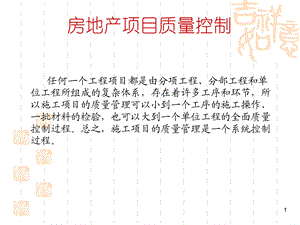 房地产项目质量控制
任何一个工程项目都是由分项工程、分部工程和单
位工程所组成的复杂体系，存在着许多工序和环节，所
以施工项目的质量管理可以小到一个工序的施工操作、
一批材料的检验，也可以大到一个单位工程的全面质量
控制过程。总之，施工项目的质量管理是一个系统控制
过程。
1